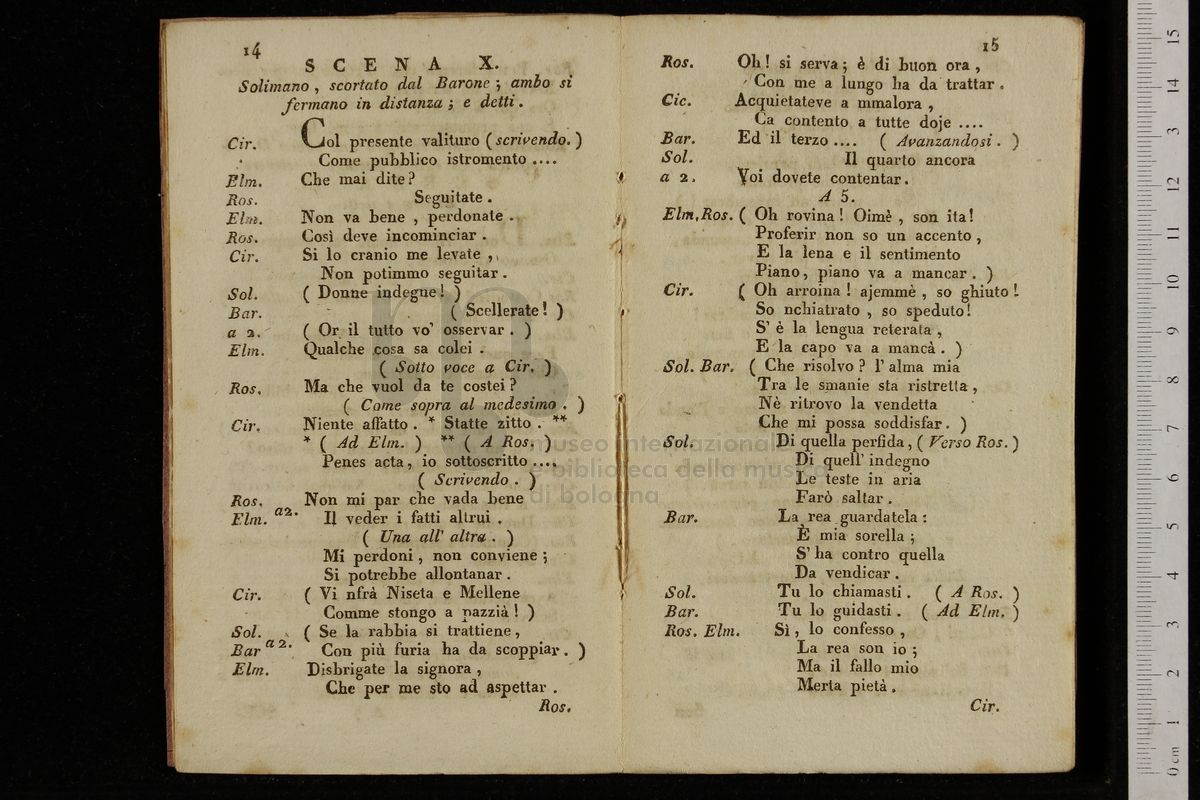 14
SCENA X.
Solimano , scortato dal Barone ; ambo si
fermano in distanza ; e detti .
Cir. Col presente valituro ( scrivendo. )
Come pubblico istromento ....
Elm. Che mai dite ?
Ros. Seguitate .
Elm. Non va bene , perdonate .
Ros. Così deve incominciar .
Cir. Si lo cranio me levate ,
Non potimmo seguitar .
Sol. ( Donne indegne ! )
Bar. ( Scellerate ! )
a 2. ( Or il tutto vo' osservar . )
Elm. Qualche cosa sa colei .
( Sotto voce a Cir. )
Ros. Ma che vuol da te costei ?
( Come sopra al medesimo . )
Cir. Niente affatto . * Statte zitto . **
* ( Ad Elm. ) ** ( A Ros. )
Penes acta , io sottoscritto ....
( Scrivendo . )
Ros. Non mi par che vada bene
Elm. a2. Il veder i fatti altrui .
( Una all' altra . )
Mi perdoni , non conviene ;
Si potrebbe allontanar .
Cir. ( Vi nfrà Niseta e Mellene
Comme stongo a pazzià ! )
Sol. ( Se la rabbia si trattiene ,
Bar a2. Con più furia ha da scoppiar . )
Elm. Disbrigate la signora ,
Che per me sto ad aspettar .
Ros.
15
Ros. Oh ! si serva ; è di buon ora ,
Con me a lungo ha da trattar .
Cic. Acquietateve a mmalora ,
Ca contento a tutte doje ....
Bar. Ed il terzo .... ( Avanzandosi . )
Sol. Il quarto ancora
a 2. Voi dovete contentar .
A 5.
Elm, Ros. ( Oh rovina ! Oimè , son ita !
Proferir non so un accento ,
E la lena e il sentimento
Piano , piano va a mancar . )
Cir. ( Oh arroina ! ajemmè , so ghiuto !
So nchiatrato , so speduto !
S' è la lengua reterata ,
E la capo va a mancà . )
Sol. Bar. ( Che risolvo ? l' alma mia
Tra le smanie sta ristretta ,
Nè ritrovo la vendetta
Che mi possa soddisfar . )
Sol. Di quella perfida , ( Verso Ros. )
Di quell' indegno
Le teste in aria
Farò saltar .
Bar. La rea guardatela :
È mia sorella ;
S' ha contro quella
Da vendicar .
Sol. Tu lo chiamasti . ( A Ros. )
Bar. Tu lo guidasti . ( Ad Elm. )
Ros. Elm. Sì , lo confesso ,
La rea son io ;
Ma il fallo mio
Merta pietà .
Cir.
museo internazionale
e biblioteca della musica
di bologna
0 cm 1 2 3 4 5 6 7 8 9 10 11 12 13 14 15